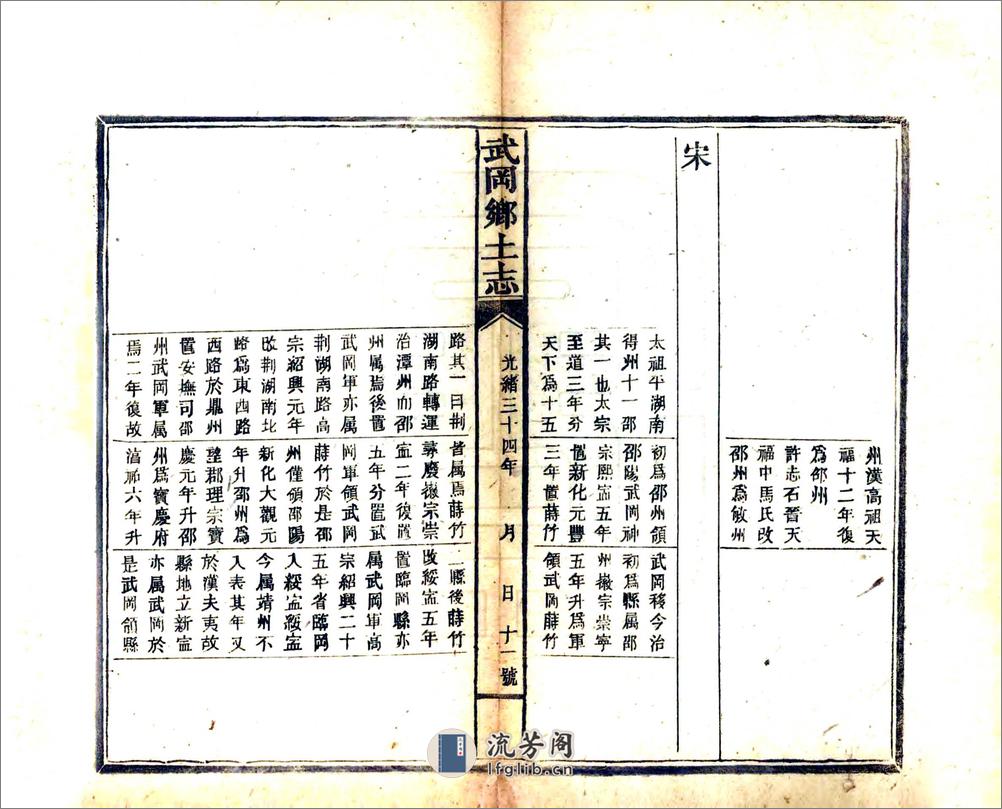 州漢高祖天
福十二年復
爲邵州
許志石晉天
福中馬氏改
邵州爲敏州
宋
太祖平湖南
得州十一邵
其一也太宗
至道三年分
天下爲十五
路其一曰荆
湖南路轉運
治潭州而邵
州属焉後置
武岡軍亦属
荆湖南路高
宗紹興元年
改荆湖南北
路爲東西路
西路於鼎州
置安撫司邵
州武岡軍属
焉二年復故
初爲邵州領
邵陽武岡神
宗熙寧五年
置新化元豐
三年置蒔竹
皆属焉蒔竹
尋廢徽宗崇
寧二年復置
五年分置武
岡軍領武岡
蒔竹於是邵
州僅領邵陽
新化大觀元
年升邵州爲
望郡理宗寶
慶元年升邵
州爲寶慶府
淯祐六年升
武岡移今治
初爲縣属邵
州徽宗崇寧
五年升爲軍
領武岡蒔竹
二縣後蒔竹
改綏寧五年
置臨岡縣亦
属武岡軍高
宗紹興二十
五年省臨岡
入綏寧綏寧
今属靖州不
入表其年又
於漢夫夷故
縣地立新寧
亦属武岡於
是武岡領縣
武岡鄉土志
光緒三十四年 月 日 十一號
流芳阁
lfglib.cn